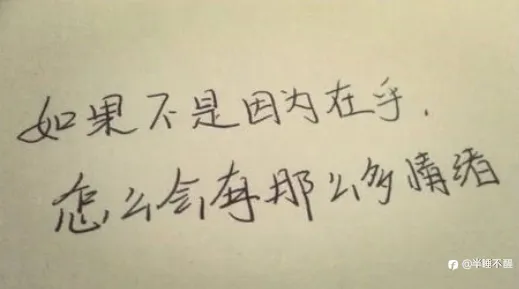 如果不是因为在乎,
怎么会有那么多情绪
@半睡不醒